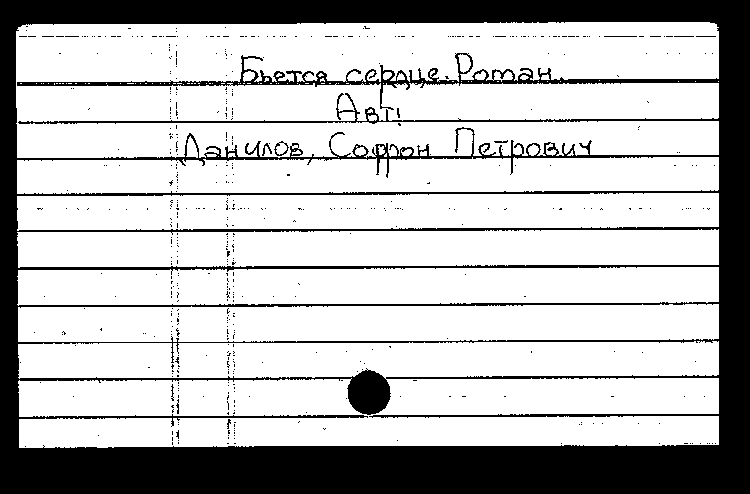 Бьется сердце. Роман.
Авт:
Данилов, Софрон Петрович